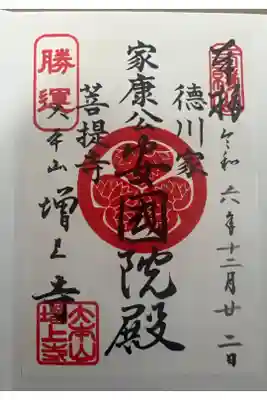 奉拝
令和六年十二月廿二日
德川家
家康公安國院殿
菩提寺
勝運
大本山
増上寺
大本山
増上寺